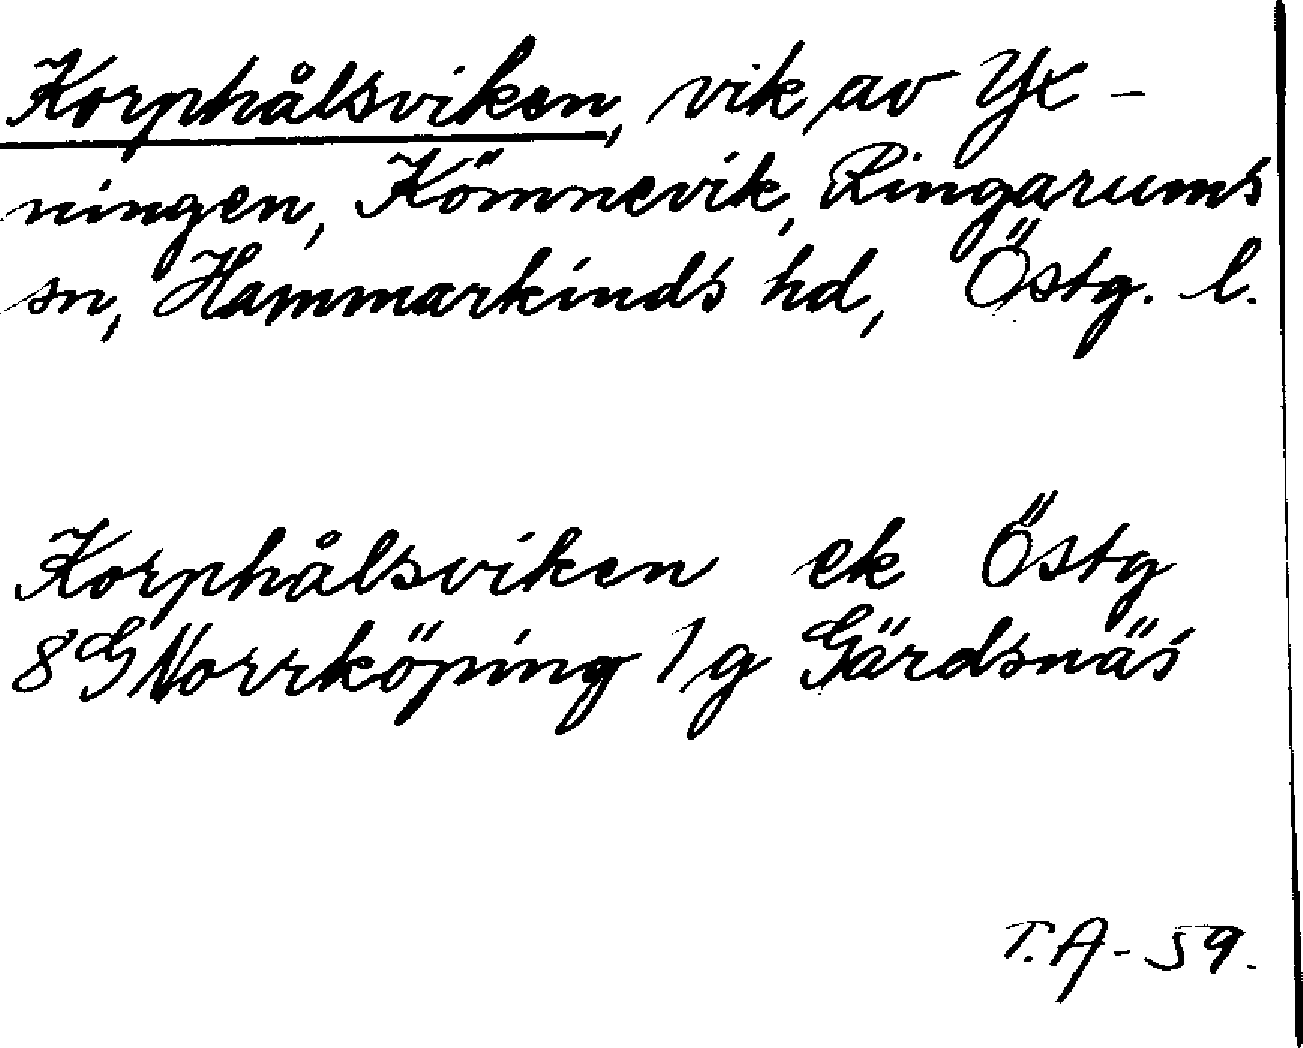 Korphålsviken, vik av Yx-
ningen, Kömnevik, Ringarums
sn, Hammarkinds hd, Östg. l.
Korphålsviken ek Östg
8G Norrköping 1g Gärdsnäs
T.A-59.